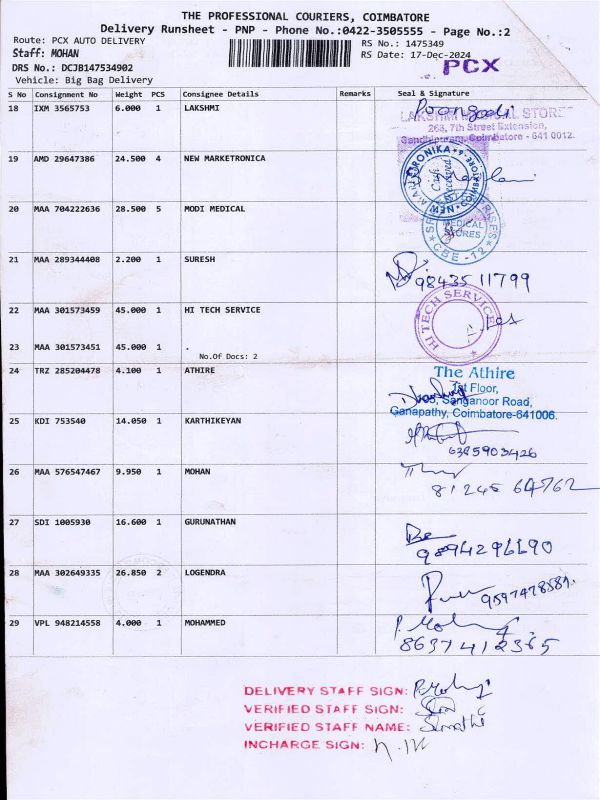 THE PROFESSIONAL COURIERS, COIMBATORE
Delivery Runsheet - PNP - Phone No.:0422-3505555 - Page No.:2
Route: PCX AUTO DELIVERY
Staff: MOHAN
DRS No.: DCJB147534902
Vehicle: Big Bag Delivery
RS No.: 1475349
RS Date: 17-Dec-2024
PCX
S No Consignment No Weight PCS Consignee Details Remarks Seal & Signature
18 IXM 3565753 6.000 1 LAKSHMI
LAKSHMI MEDICAL STORE
268, 7th Street Extension,
Gandhipuram, Coimbatore - 641 0012.
19 AMD 29647386 24.500 4 NEW MARKETRONICA
20 MAA 704222636 28.500 5 MODI MEDICAL
MEDICAL
STORES
CBE -12
21 MAA 289344408 2.200 1 SURESH
98435 11799
22 MAA 301573459 45.000 1 HI TECH SERVICE
HI TECH SERVICE
23 MAA 301573451 45.000 1 .
No.Of Docs: 2
24 TRZ 285204478 4.100 1 ATHIRE
The Athire
1st Floor,
Sanganoor Road,
Ganapathy, Coimbatore-641006.
25 KDI 753540 14.050 1 KARTHIKEYAN
6385903426
26 MAA 576547467 9.950 1 MOHAN
81245 64762
27 SDI 1005930 16.600 1 GURUNATHAN
28 MAA 302649335 26.850 2 LOGENDRA
29 VPL 948214558 4.000 1 MOHAMMED
8637412365
DELIVERY STAFF SIGN:
VERIFIED STAFF SIGN:
VERIFIED STAFF NAME:
INCHARGE SIGN: